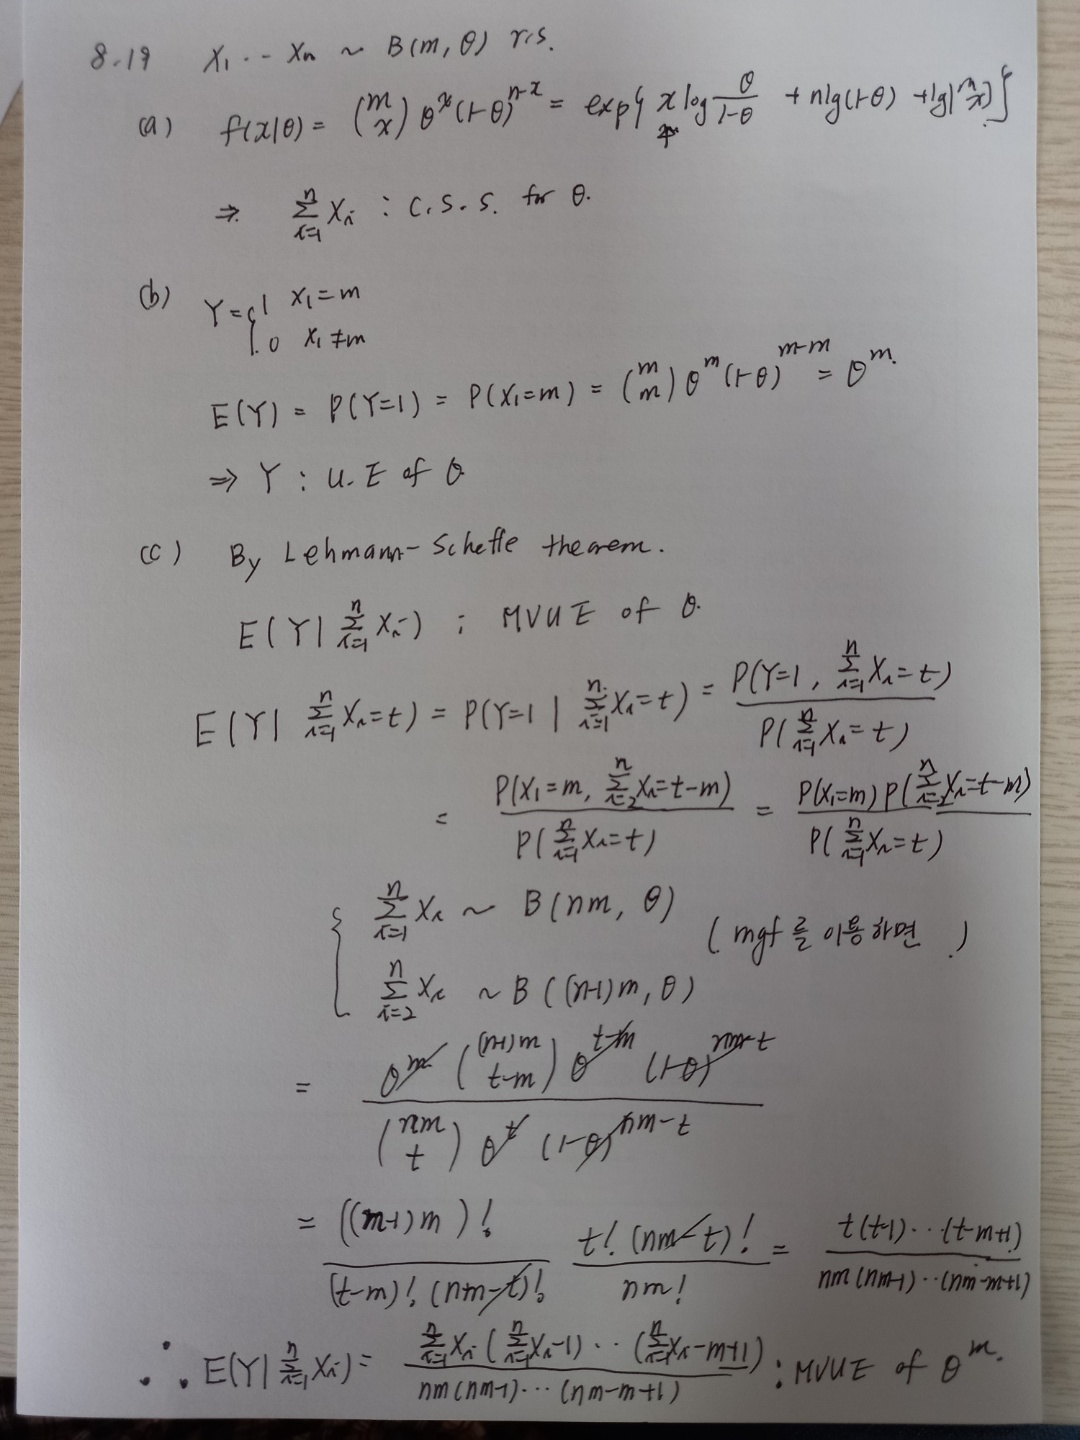 8.19 X₁ ... Xₙ ~ B(m, θ) r.s.
(a) f(x|θ) = (m x) θ^x (1-θ)^{n-x} = exp{ x log θ/(1-θ) + n lg(1-θ) + lg(m x) }
⇒ Σ_{i=1}^n Xᵢ : C.S.S. for θ.
(b) Y = { 1 X₁ = m
0 X₁ ≠ m
E(Y) = P(Y=1) = P(X₁=m) = (m m) θ^m (1-θ)^{m-m} = θ^m.
⇒ Y : U.E of θ
(c) By Lehmann-Scheffe theorem.
E(Y| Σ_{i=1}^n Xᵢ) ; MVUE of θ.
E(Y| Σ_{i=1}^n Xᵢ=t) = P(Y=1 | Σ_{i=1}^n Xᵢ=t) = P(Y=1, Σ_{i=1}^n Xᵢ=t) / P(Σ_{i=1}^n Xᵢ=t)
= P(X₁=m, Σ_{i=2}^n Xᵢ=t-m) / P(Σ_{i=1}^n Xᵢ=t) = P(X₁=m) P(Σ_{i=2}^n Xᵢ=t-m) / P(Σ_{i=1}^n Xᵢ=t)
{ Σ_{i=1}^n Xᵢ ~ B(nm, θ)
(mgf를 이용하면)
Σ_{i=2}^n Xᵢ ~ B((n-1)m, θ)
= θ^m ((n-1)m t-m) θ^{t-m} (1-θ)^{nm-t} / (nm t) θ^t (1-θ)^{nm-t}
= ((m-1)m)! / (t-m)! (nm-t)! t! (nm-t)! / nm! = t(t-1)...(t-m+1) / nm(nm-1)...(nm-m+1)
∴ E(Y| Σ_{i=1}^n Xᵢ) = Σ_{i=1}^n Xᵢ (Σ_{i=1}^n Xᵢ-1) ... (Σ_{i=1}^n Xᵢ-m+1) / nm(nm-1)...(nm-m+1) : MVUE of θ^m.